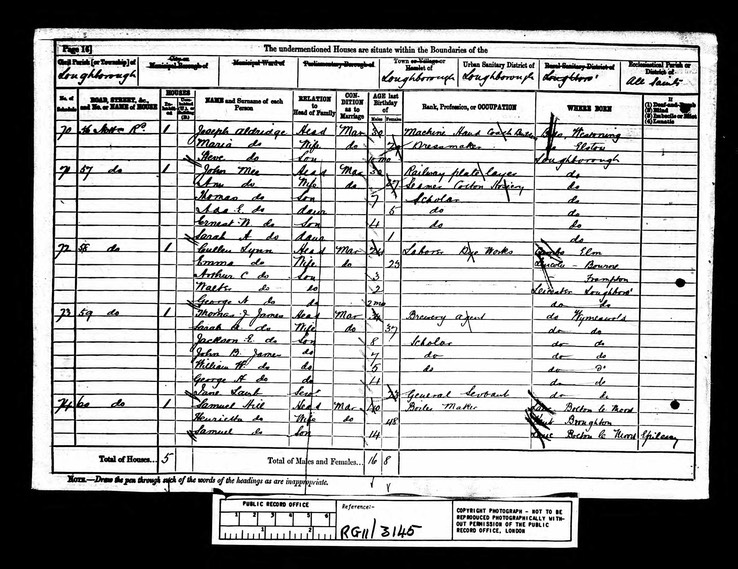 Page 16]
The undermentioned Houses are situate within the Boundaries of the
Civil Parish [or Township] of
City or Municipal Borough of
Municipal Ward of
Parliamentary Borough of
Town or Village or Hamlet of
Urban Sanitary District of
Rural Sanitary District of
Ecclesiastical Parish or District of
Loughborough Loughborough Loughborough Loughboro' All Saints
No. of Schedule
ROAD, STREET, &c., and No. or NAME of HOUSE
HOUSES
NAME and Surname of each Person
RELATION to Head of Family
CONDITION as to Marriage
AGE last Birthday of
Males Females
Rank, Profession, or OCCUPATION
WHERE BORN
If
(1) Deaf-and-Dumb
(2) Blind
(3) Imbecile or Idiot
(4) Lunatic
70 56 Rd. 1 Joseph Aldridge Head Mar 30 Machine Hand
Maria do Wife do Dressmaker
do Son mo Loughborough
71 57 do 1 John Head Mar Railway plate layer do
Ann do Wife do 27 Seamer Cotton Hosiery do
Thomas do Son 7 Scholar do
E. do daur 5 do do
Ernest W do Son 4 do do
Sarah A do daur 1 do
72 58 do 1 Cullen Lynn Head Mar Laborer Dye Works Elm
Emma do Wife do 23 Lincoln - Bourne
Arthur C do Son 3 Frampton
Walter do do 2 Leicester Loughboro'
George A do do 2 mo do do
73 59 do 1 Thomas J James Head Mar Brewery agent do Wymeswold
Sarah A. do Wife do 37 do do
Jackson E. do Son 8 Scholar do do
John B. James do 7 do do do
William H do do 5 do do
George H do do 4 do do
Jane Serv General Servant do do
74 60 do 1 Samuel Hill Head Mar Boiler Maker Bolton le Moors
Henrietta do Wife do 48 Broughton
Samuel do Son 14 Bolton le Moors Epilepsy
Total of Houses... 5
Total of Males and Females... 16 8
NOTE.—Draw the pen through such of the words of the headings as are inappropriate.
PUBLIC RECORD OFFICE
1 2 3 4 5 6
1 2
Reference:-
RG11/3145
COPYRIGHT PHOTOGRAPH - NOT TO BE REPRODUCED PHOTOGRAPHICALLY WITHOUT PERMISSION OF THE PUBLIC RECORD OFFICE, LONDON